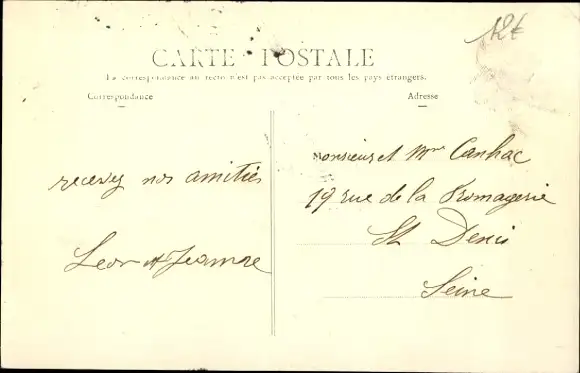 12€
CARTE POSTALE
La correspondance au recto n'est pas acceptée par tous les pays étrangers.
Correspondance
Adresse
recevez nos amitiés
Leon et Jeanne
Monsieur et Mme Canhac
19 rue de la Fromagerie
St Denis
Seine